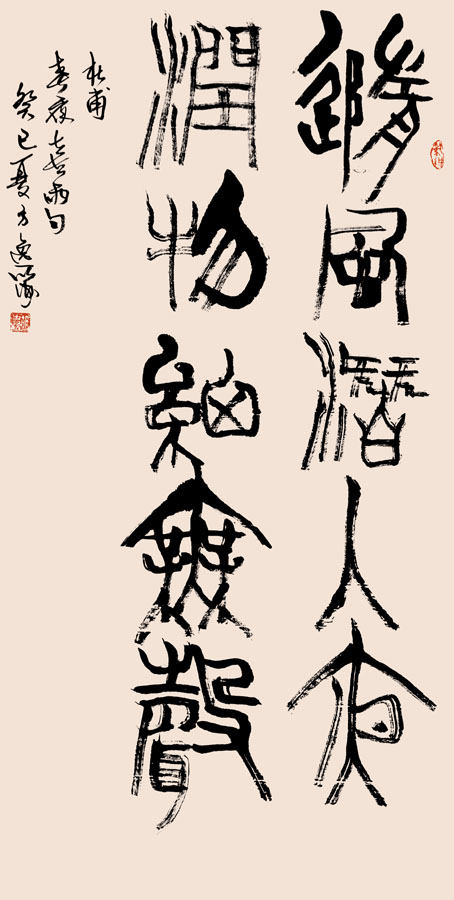 隨風潛入夜
潤物細無聲
杜甫
春夜喜雨句
癸巳夏方